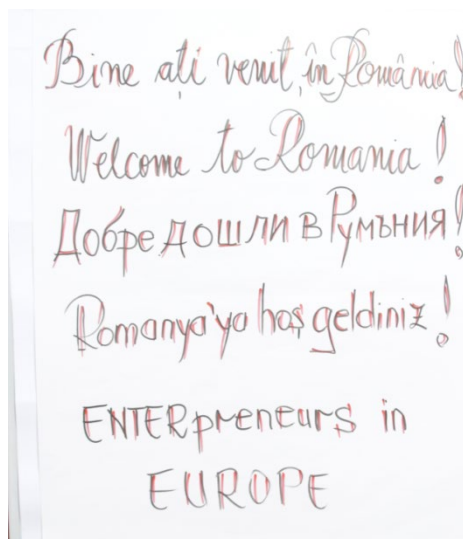 Bine ați venit în România!
Welcome to Romania!
Добре дошли в Румъния!
Romanya'ya hoş geldiniz!
ENTERpreneurs in
EUROPE